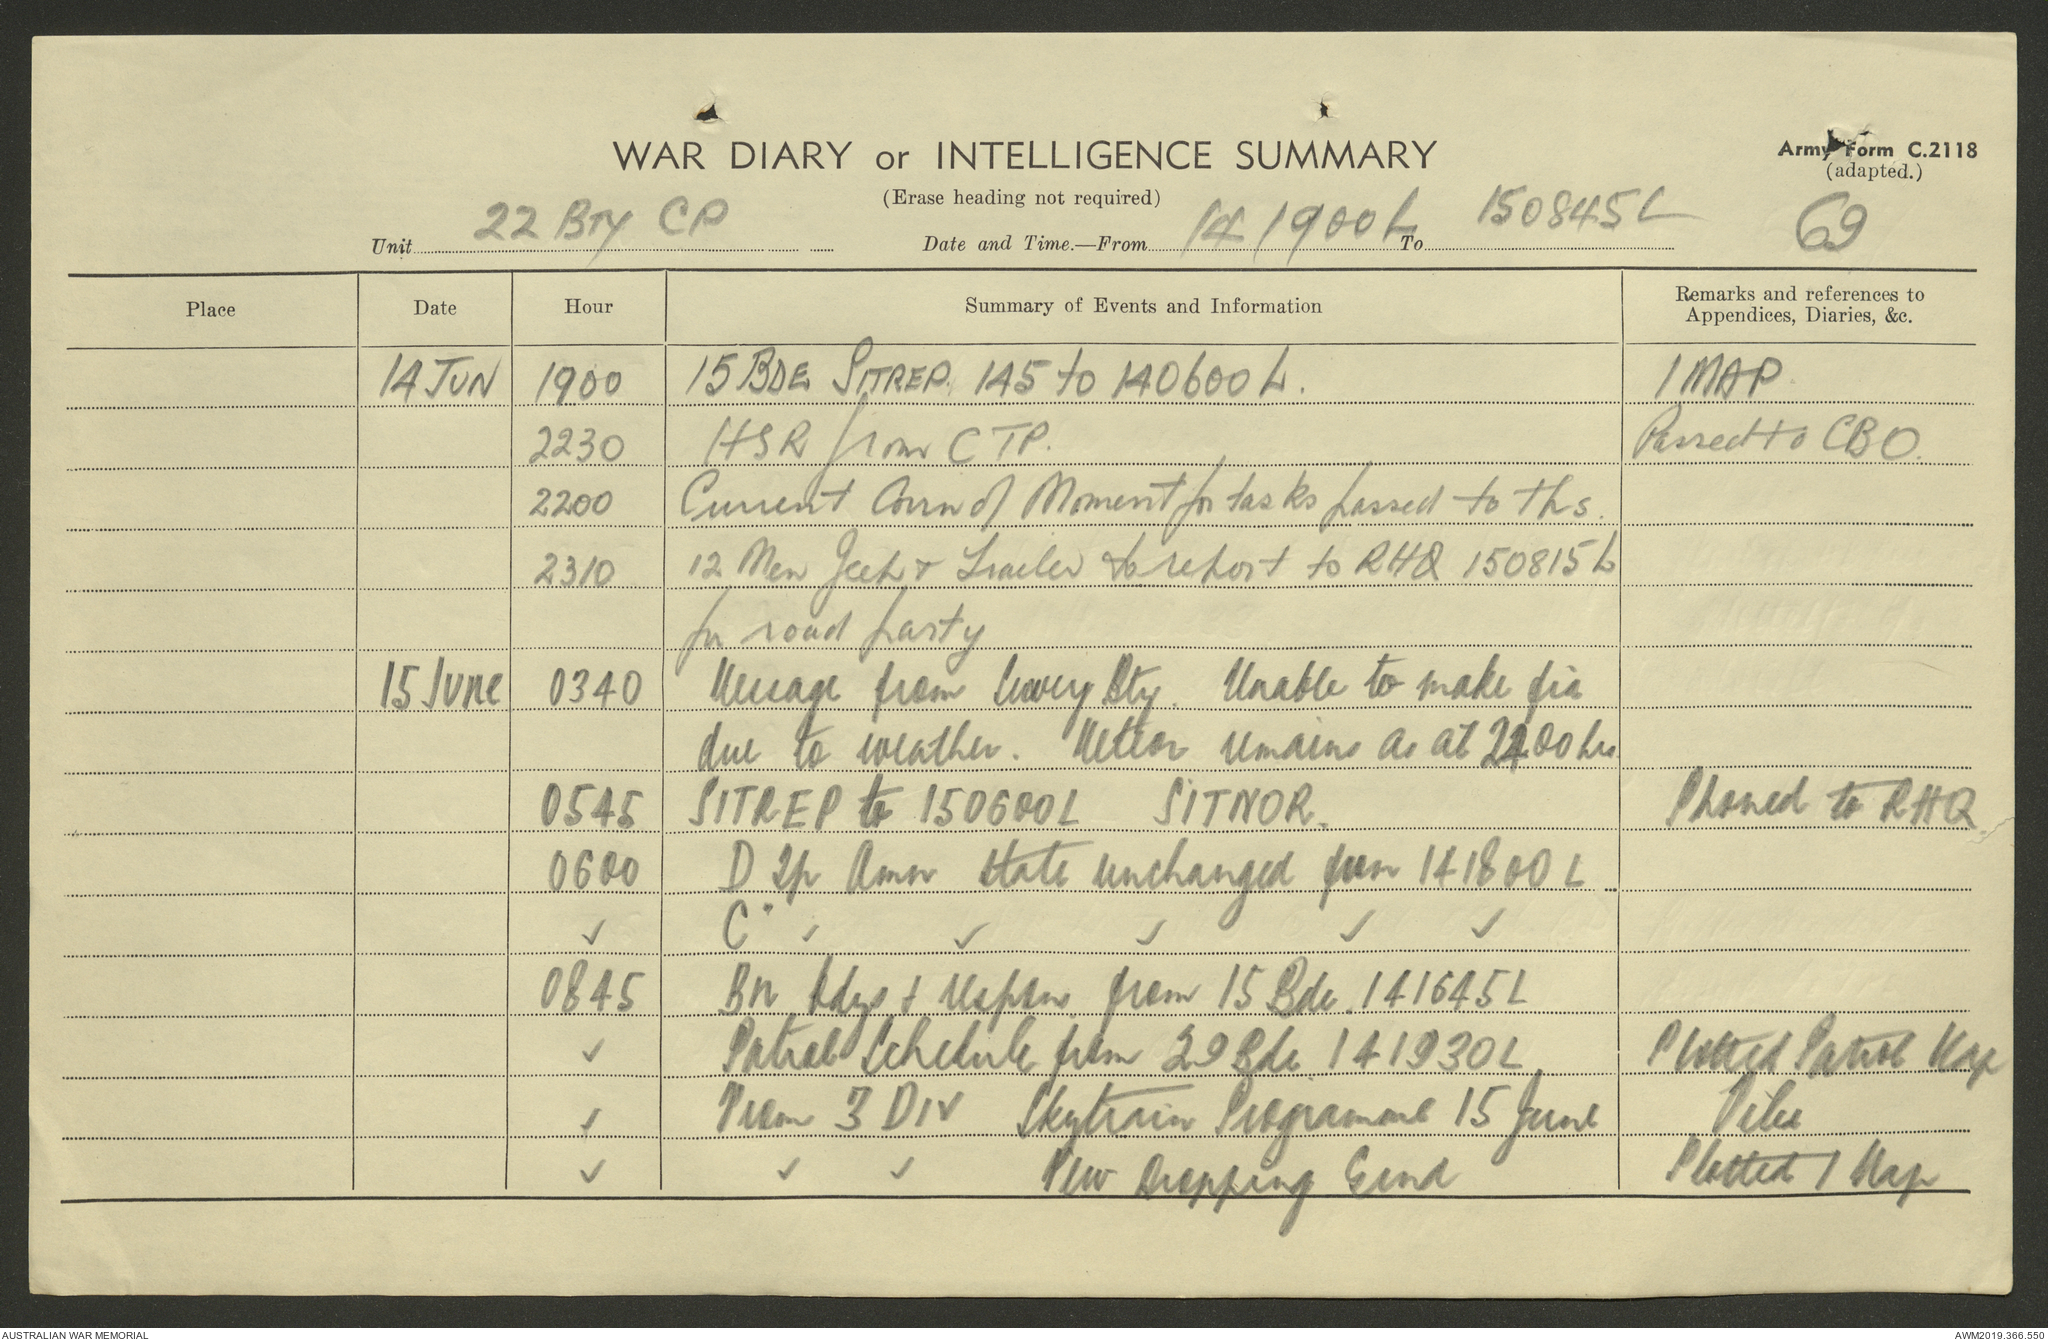 WAR DIARY or INTELLIGENCE SUMMARY
Army Form C.2118
(adapted.)
(Erase heading not required)
69
Unit 22 BTY CP Date and Time.—From 14 1900L To 150845L
Place Date Hour Summary of Events and Information Remarks and references to
Appendices, Diaries, &c.
14 JUN 1900 15 BDE SITREP. 145 to 140600L. 1 MAP
2230 HSR from CTP. Passed to CBO.
2200 Current Corrn of Moment for tasks passed to tps.
2310 12 Men Jeep & Trailer to report to RHQ 150815L
for road party
15 JUNE 0340 Message from Survey Bty. Unable to make
due to weather. Meteor remains as at 2200 hrs
0545 SITREP to 150600L SITNOR. Phoned to RHQ.
0600 D Tp Amn state unchanged from 141800L
✓ C " ✓ ✓ ✓ ✓ ✓
0845 Bn Bdys + from 15 Bde. 141645L
✓ Patrol Schedule from 29 Bde. 141930L Plotted Patrol Map
✓ From 3 DIV Skytrain Programme 15 June File
✓ ✓ ✓ New Dropping Grnd Plotted 1 Map
AUSTRALIAN WAR MEMORIAL
AWM2019.366.550